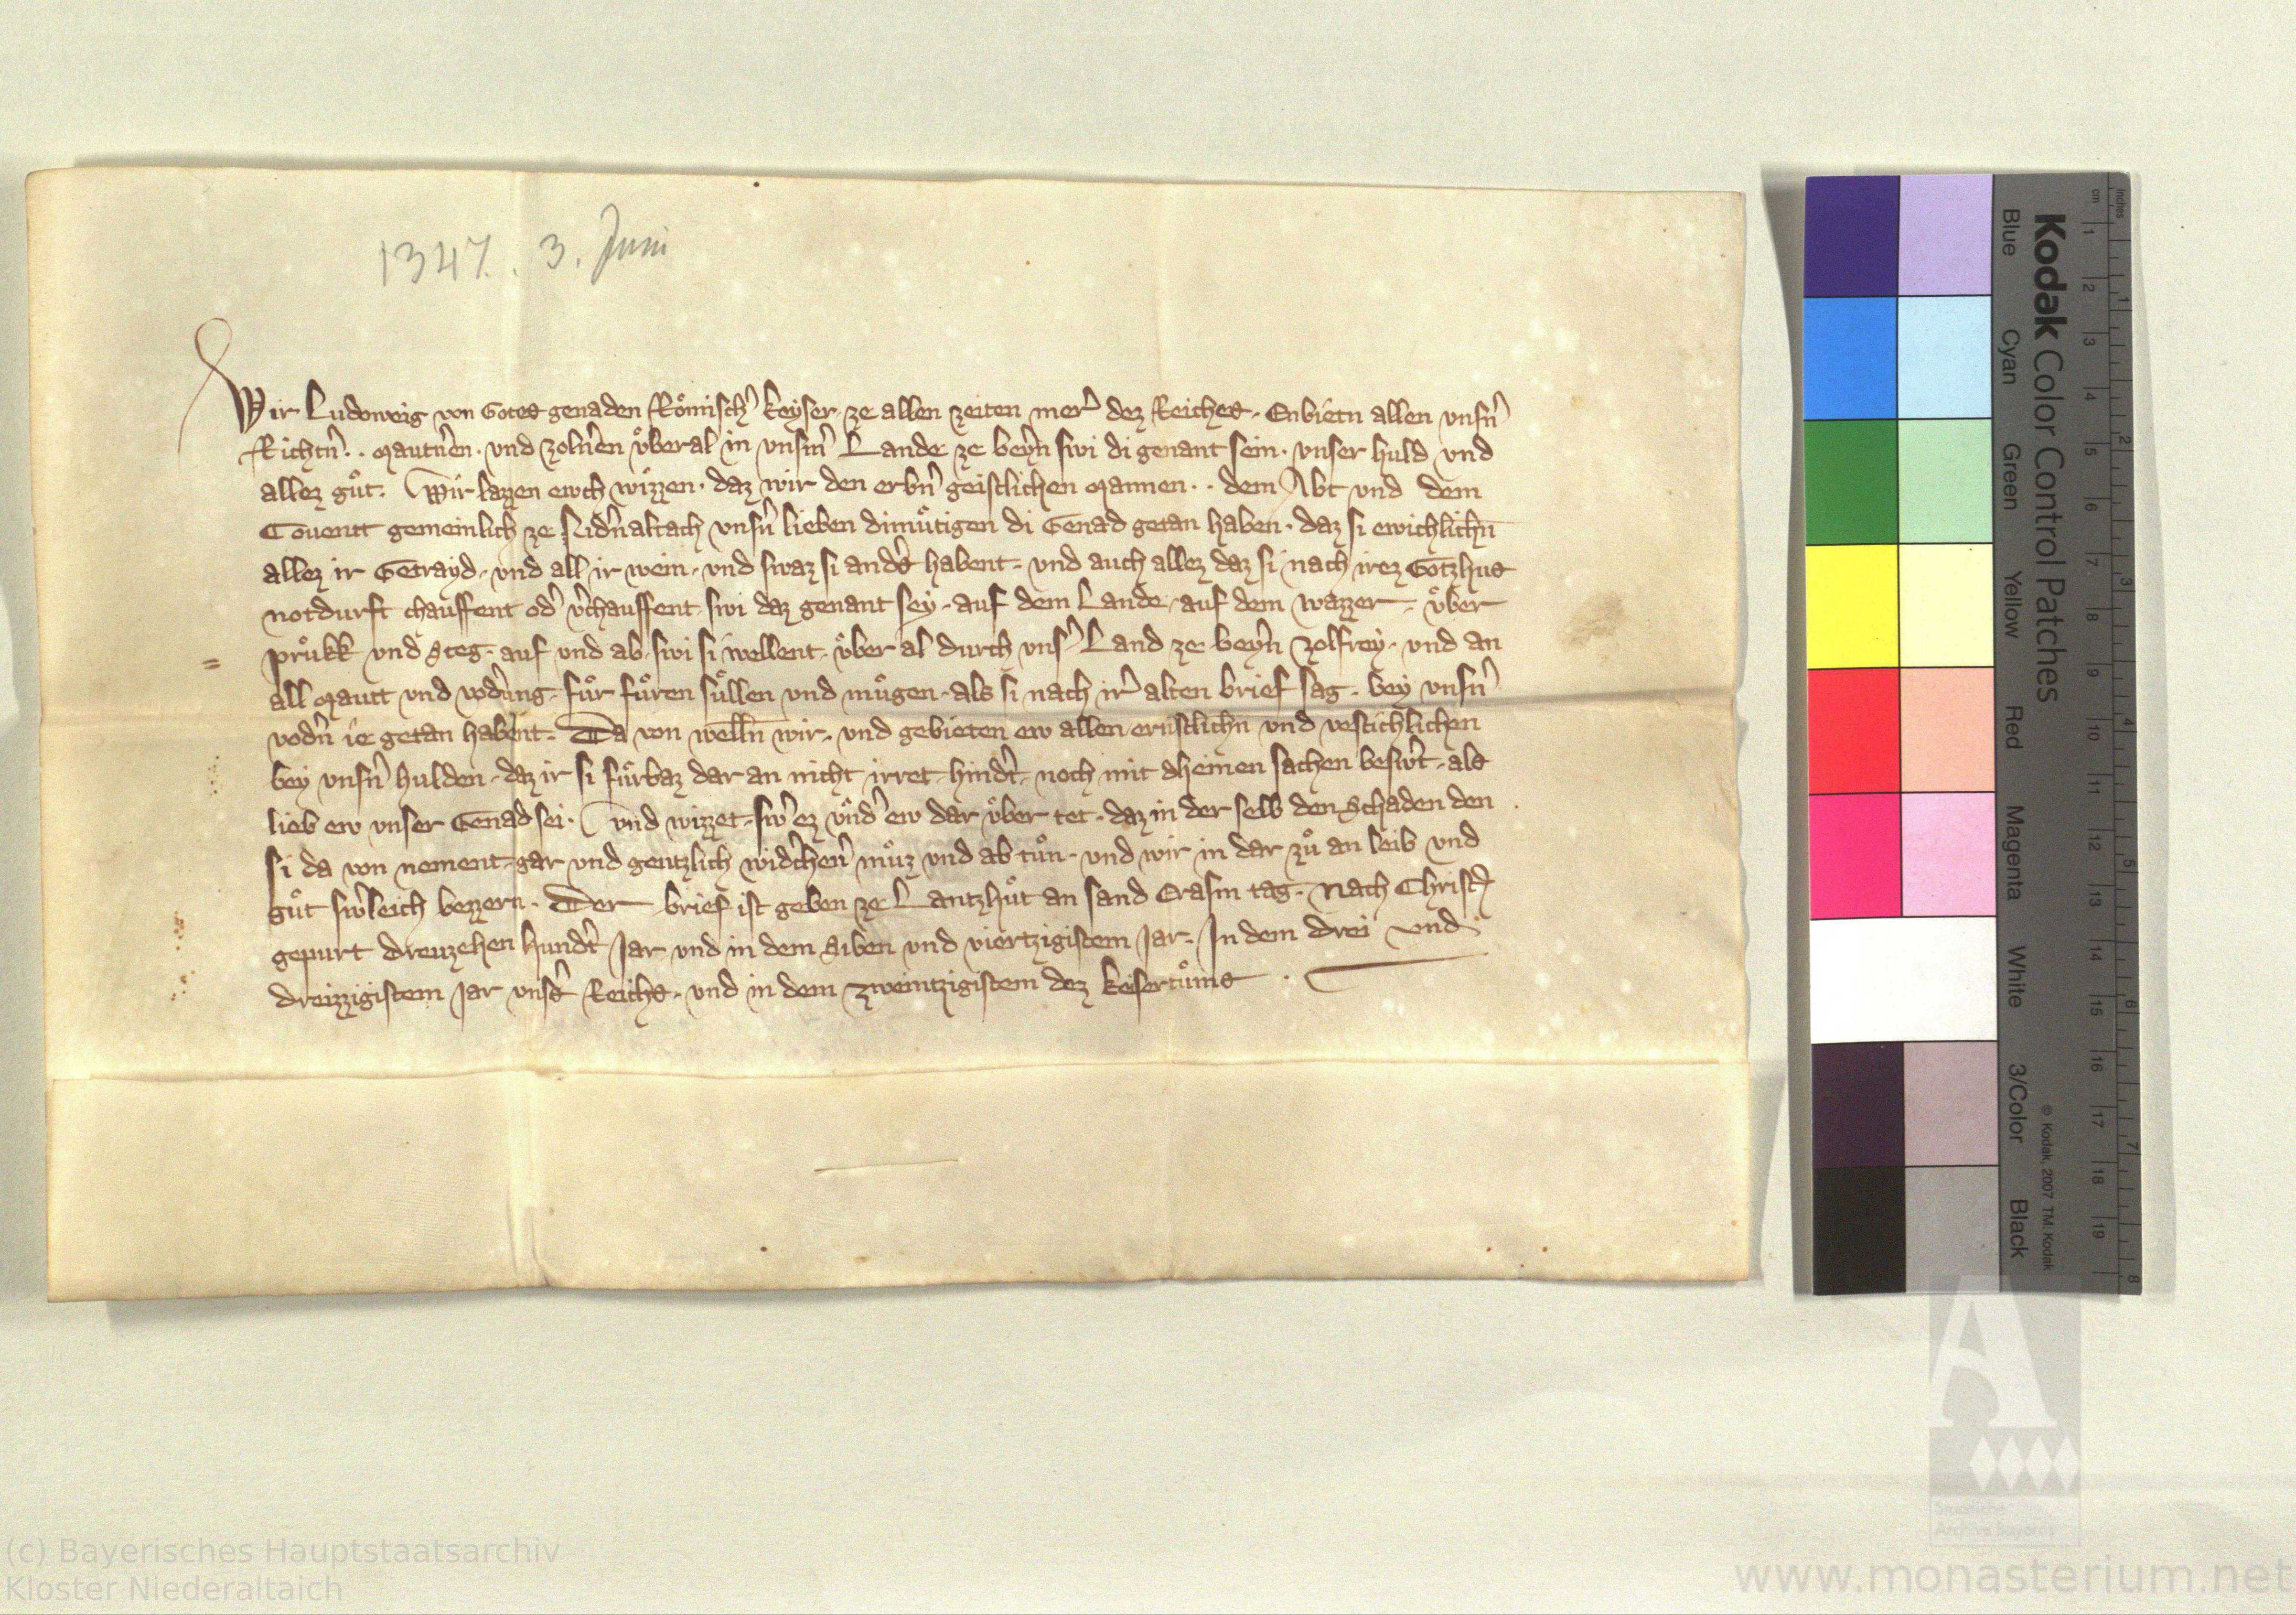 1347. 3. Juni
Wir Ludowig von Gotes genaden Roͤmischˀ keyser ze allen zeiten merˀ dez Reiches · Enbietn allen vnsnˀ
Richtnˀ · · Mautnˀen · vnd zolnˀen uͤberal in vnsmˀ Lande ze beyrn swi di genant sein · vnser huld vnd
allez guͦt · Wir lazzen ewch wizzen · daz wir den erbnˀ geistlichen Mannen · · dem Abt vnd dem
Couentt gemeinlich ze Nidˀnaltach vnsnˀ lieben dimuͤtigen di Genad getan haben · daz si ewichlichn̄
allez ir Getrayd · vnd all ir wein · vnd swaz si andˀs habent · vnd auch allez daz si nach irez Gotzhus
notdurft chauffent odˀ vˀchauffent swi daz genant sey · auf dem Lande · auf dem wazzer · uͤber
pruͤkk vnd Steg · auf vnd ab · swi si wellent · uͤber al durch vnsˀ Land ze beyrn zolfrey · vnd an
all Mautt vnd vodˀung · fuͤr fuͤren suͤllen vnd muͤgen · als si nach irˀ alten brief sag · bey vnsnˀ
vodˀn ie getan habent · Da von welln̄ wir · vnd gebieten ew allen ernstlichn vnd vestichlichen
bey vnsnˀ hulden · daz ir si fuͤrbaz dar an nicht irret · hindˀt · noch mit dheinen sachen beswˀt · als
lieb ew vnser Genad sei · Vnd wizzet · swˀ ez vndˀ ew dar uͤber tet · daz in der selb den Schaden den
si da von nement · gar vnd gentzlich widˀchernˀ muͤz vnd ab tuͦn · vnd wir in dar zuͦ an leib vnd
guͦt swˀleich bezzern · Der brief ist geben ze Lantzhuͦt an sand Erasm tag · Nach Christˀ
gepurt Dreuzehen hundˀt Jar vnd in dem Siben vnd viertzigistem Jar · In dem drei vnd
dreizzigistem Jar vnsˀs Reichs · vnd in dem zweintzigistem dez keisertuͦms ·
Kodak Color Control Patches
Blue Cyan Green Yellow Red Magenta White 3/Color Black
© Kodak, 2007 TM: Kodak
inches 1 2 3 4 5 6 7 8
cm 1 2 3 4 5 6 7 8 9 10 11 12 13 14 15 16 17 18 19
Staatliche
Archive Bayerns
(c) Bayerisches Hauptstaatsarchiv
Kloster Niederaltaich
www.monasterium.net